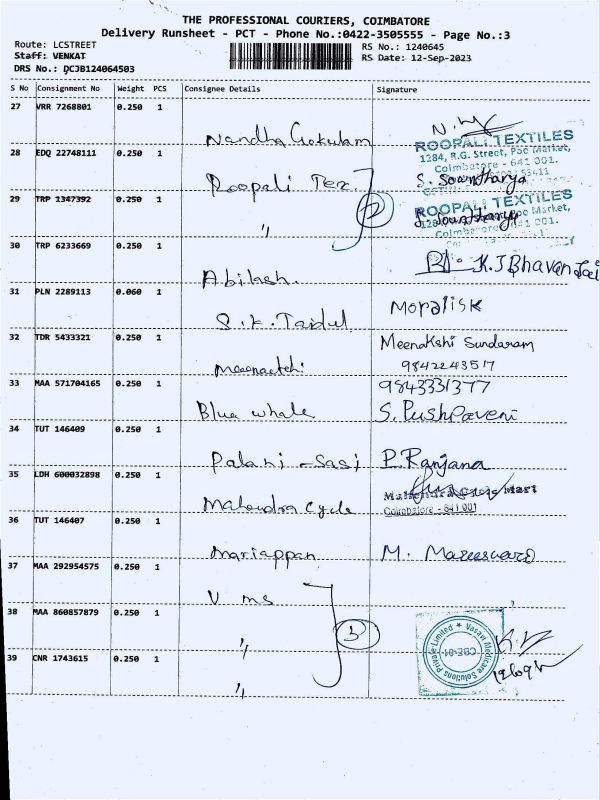 THE PROFESSIONAL COURIERS, COIMBATORE
Delivery Runsheet - PCT - Phone No.:0422-3505555 - Page No.:3
Route: LCSTREET
RS No.: 1240645
Staff: VENKAT
RS Date: 12-Sep-2023
DRS No.: DCJB124064503
S No Consignment No Weight PCS Consignee Details Signature
27 VRR 7268801 0.250 1
Nandha Gokulam
28 EDQ 22748111 0.250 1
ROOPALI TEXTILES
1284, R.G. Street, Poo Market,
Coimbatore - 641 001.
Roopali Tex. S. Soundharya
29 TRP 1347392 0.250 1
2
ROOPALI TEXTILES
〃
30 TRP 6233669 0.250 1
Abilash. K.J Bhaven Jai
31 PLN 2289113 0.060 1
S.K. Moralisk
32 TDR 5433321 0.250 1
Meenakshi Sundaram
9842243517
33 MAA 571704165 0.250 1
9843331377
Blue whale S. Pushpaveni
34 TUT 146409 0.250 1
Palani - Sasi P. Ranjana
35 LDH 600032898 0.250 1
Mahendra Cycle Mart
Coimbatore - 641 001
36 TUT 146407 0.250 1
Mariappan M.
37 MAA 292954575 0.250 1
V ms
38 MAA 860857879 0.250 1
3
〃
39 CNR 1743615 0.250 1
Vasavi Medicare Solutions Private Limited
CBE-01
〃